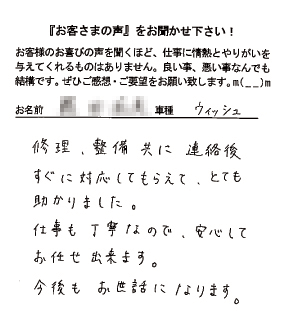 『お客さまの声』をお聞かせ下さい！
お客様のお喜びの声を聞くほど、仕事に情熱とやりがいを
与えてくれるものはありません。良い事、悪い事なんでも
結構です。ぜひご感想・ご要望をお願い致します。m(__)m
お名前 車種 ウィッシュ
修理、整備 共に 連絡後
すぐに対応してもらえて、とても
助かりました。
仕事も丁寧なので、安心して
お任せ出来ます。
今後も お世話になります。